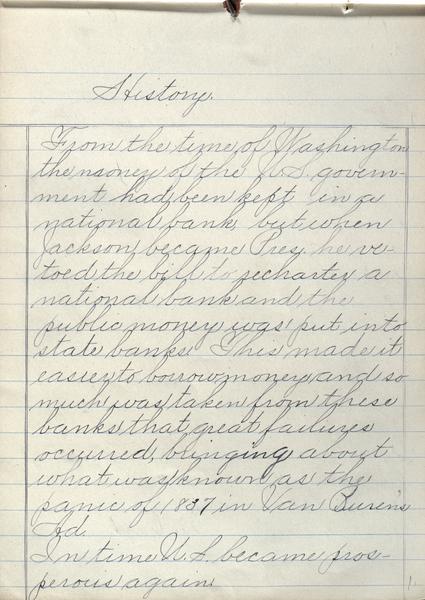 History.
From the time of Washington
the money of the U.S. govern-
ment had been kept in a
national bank, but when
Jackson became Pres. he ve-
toed the bill to recharter a
national bank and the
public money was put into
state banks. This made it
easier to borrow money and so
much was taken from these
banks that great failures
occurred, bringing about
what was known as the
panic of 1837 in Van Buren's
Ad.
In time U.S. became pros-
perous again.